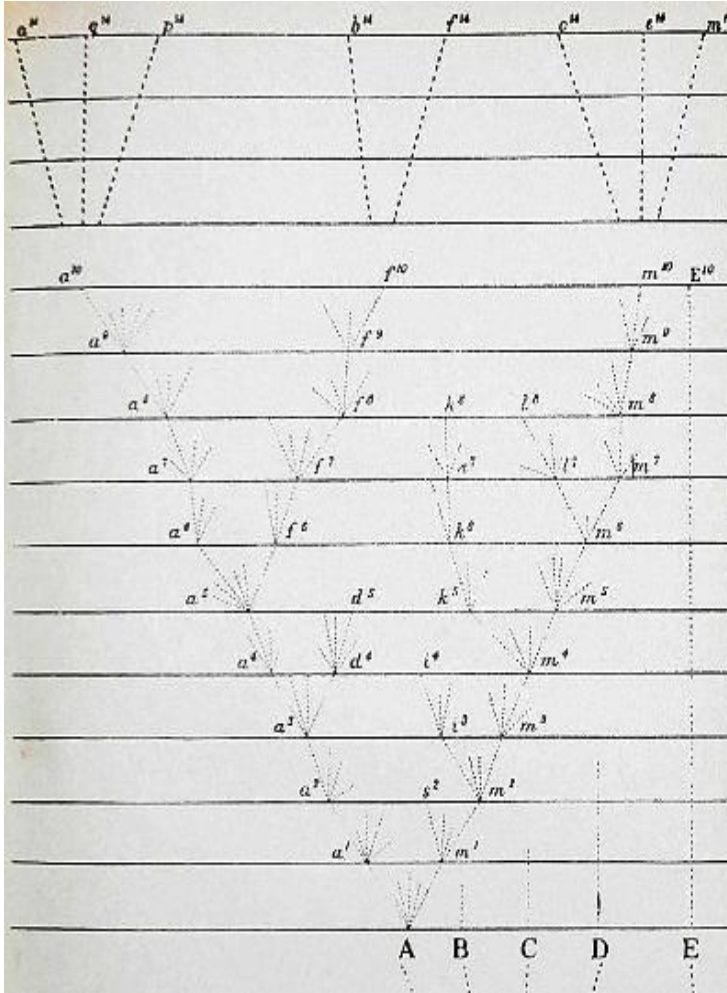 a¹⁴ q¹⁴ p¹⁴ b¹⁴ f¹⁴ o¹⁴ e¹⁴ m¹
a¹⁰ f¹⁰ m¹⁰ E¹⁰
a⁹ f⁹ m⁹
a⁸ f⁸ k⁸ l⁸ m⁸
a⁷ f⁷ k⁷ l⁷ m⁷
a⁶ f⁶ k⁶ m⁶
a⁵ d⁵ k⁵ m⁵
a⁴ d⁴ i⁴ m⁴
a³ i³ m³
a² s² m²
a¹ m¹
A B C D E